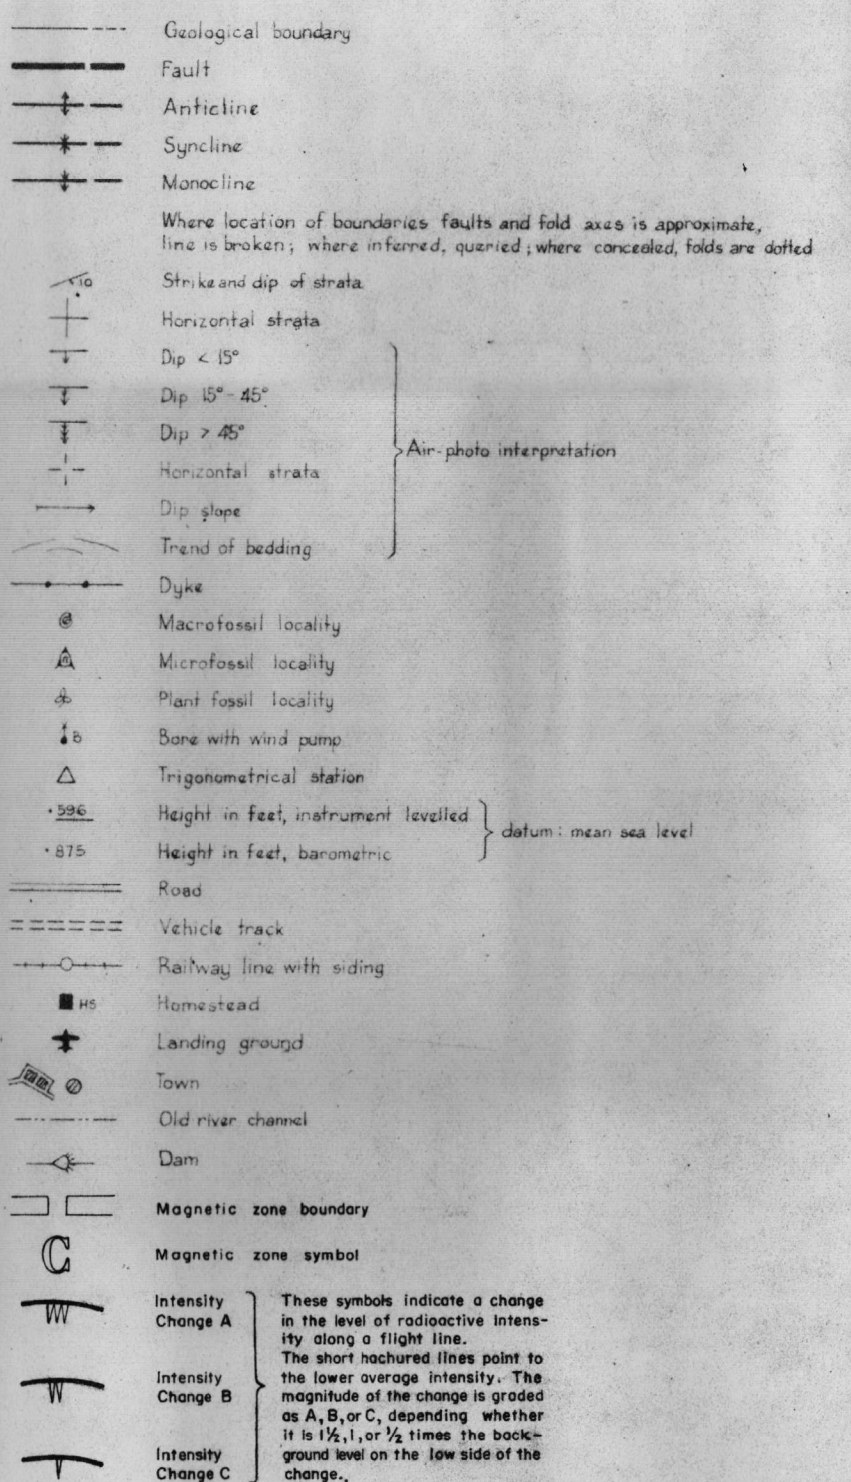 Geological boundary
Fault
Anticline
Syncline
Monocline
Where location of boundaries faults and fold axes is approximate,
line is broken; where inferred, queried; where concealed, folds are dotted
10 Strike and dip of strata
Horizontal strata
Dip < 15°
Dip 15° - 45°
Dip > 45°
Air-photo interpretation
Horizontal strata
Dip slope
Trend of bedding
Dyke
Macrofossil locality
Microfossil locality
Plant fossil locality
B Bore with wind pump
Trigonometrical station
·596 Height in feet, instrument levelled
datum: mean sea level
·875 Height in feet, barometric
Road
Vehicle track
Railway line with siding
HS Homestead
Landing ground
Town
Old river channel
Dam
Magnetic zone boundary
C Magnetic zone symbol
Intensity
Change A
Intensity
Change B
Intensity
Change C
These symbols indicate a change
in the level of radioactive Intens-
ity along a flight line.
The short hachured lines point to
the lower average intensity. The
magnitude of the change is graded
as A, B, or C, depending whether
it is 1½, 1, or ½ times the back-
ground level on the low side of the
change.